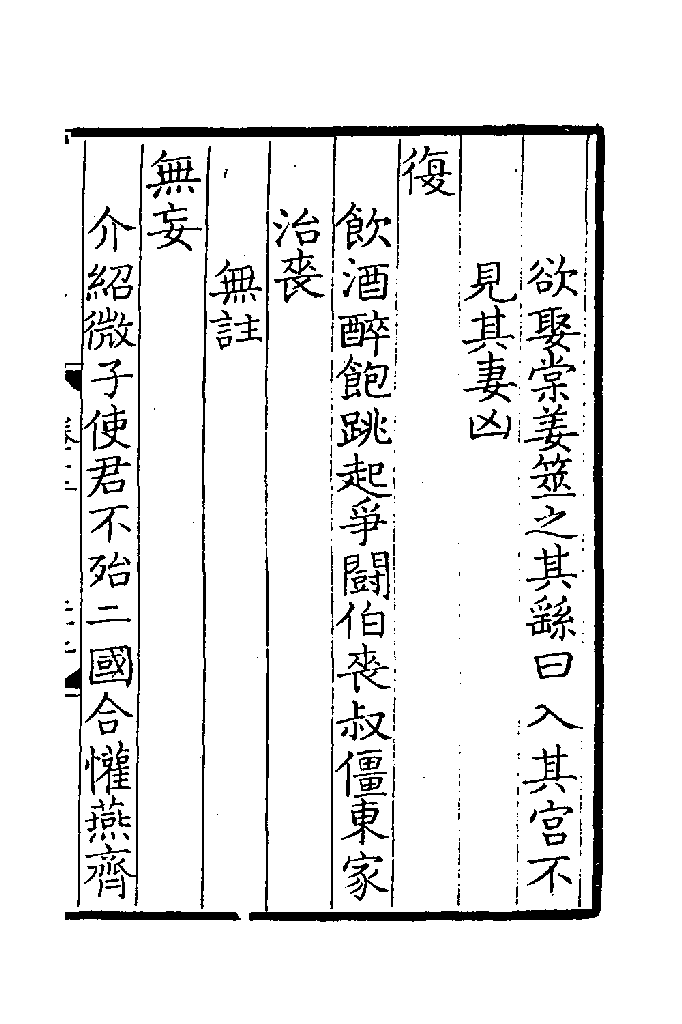 欲娶棠姜筮之其繇曰入其宮不
見其妻凶
復
飲酒醉飽跳起爭鬭伯喪叔僵東家
治喪
無註
無妄
介紹微子使君不殆二國合懽燕齊